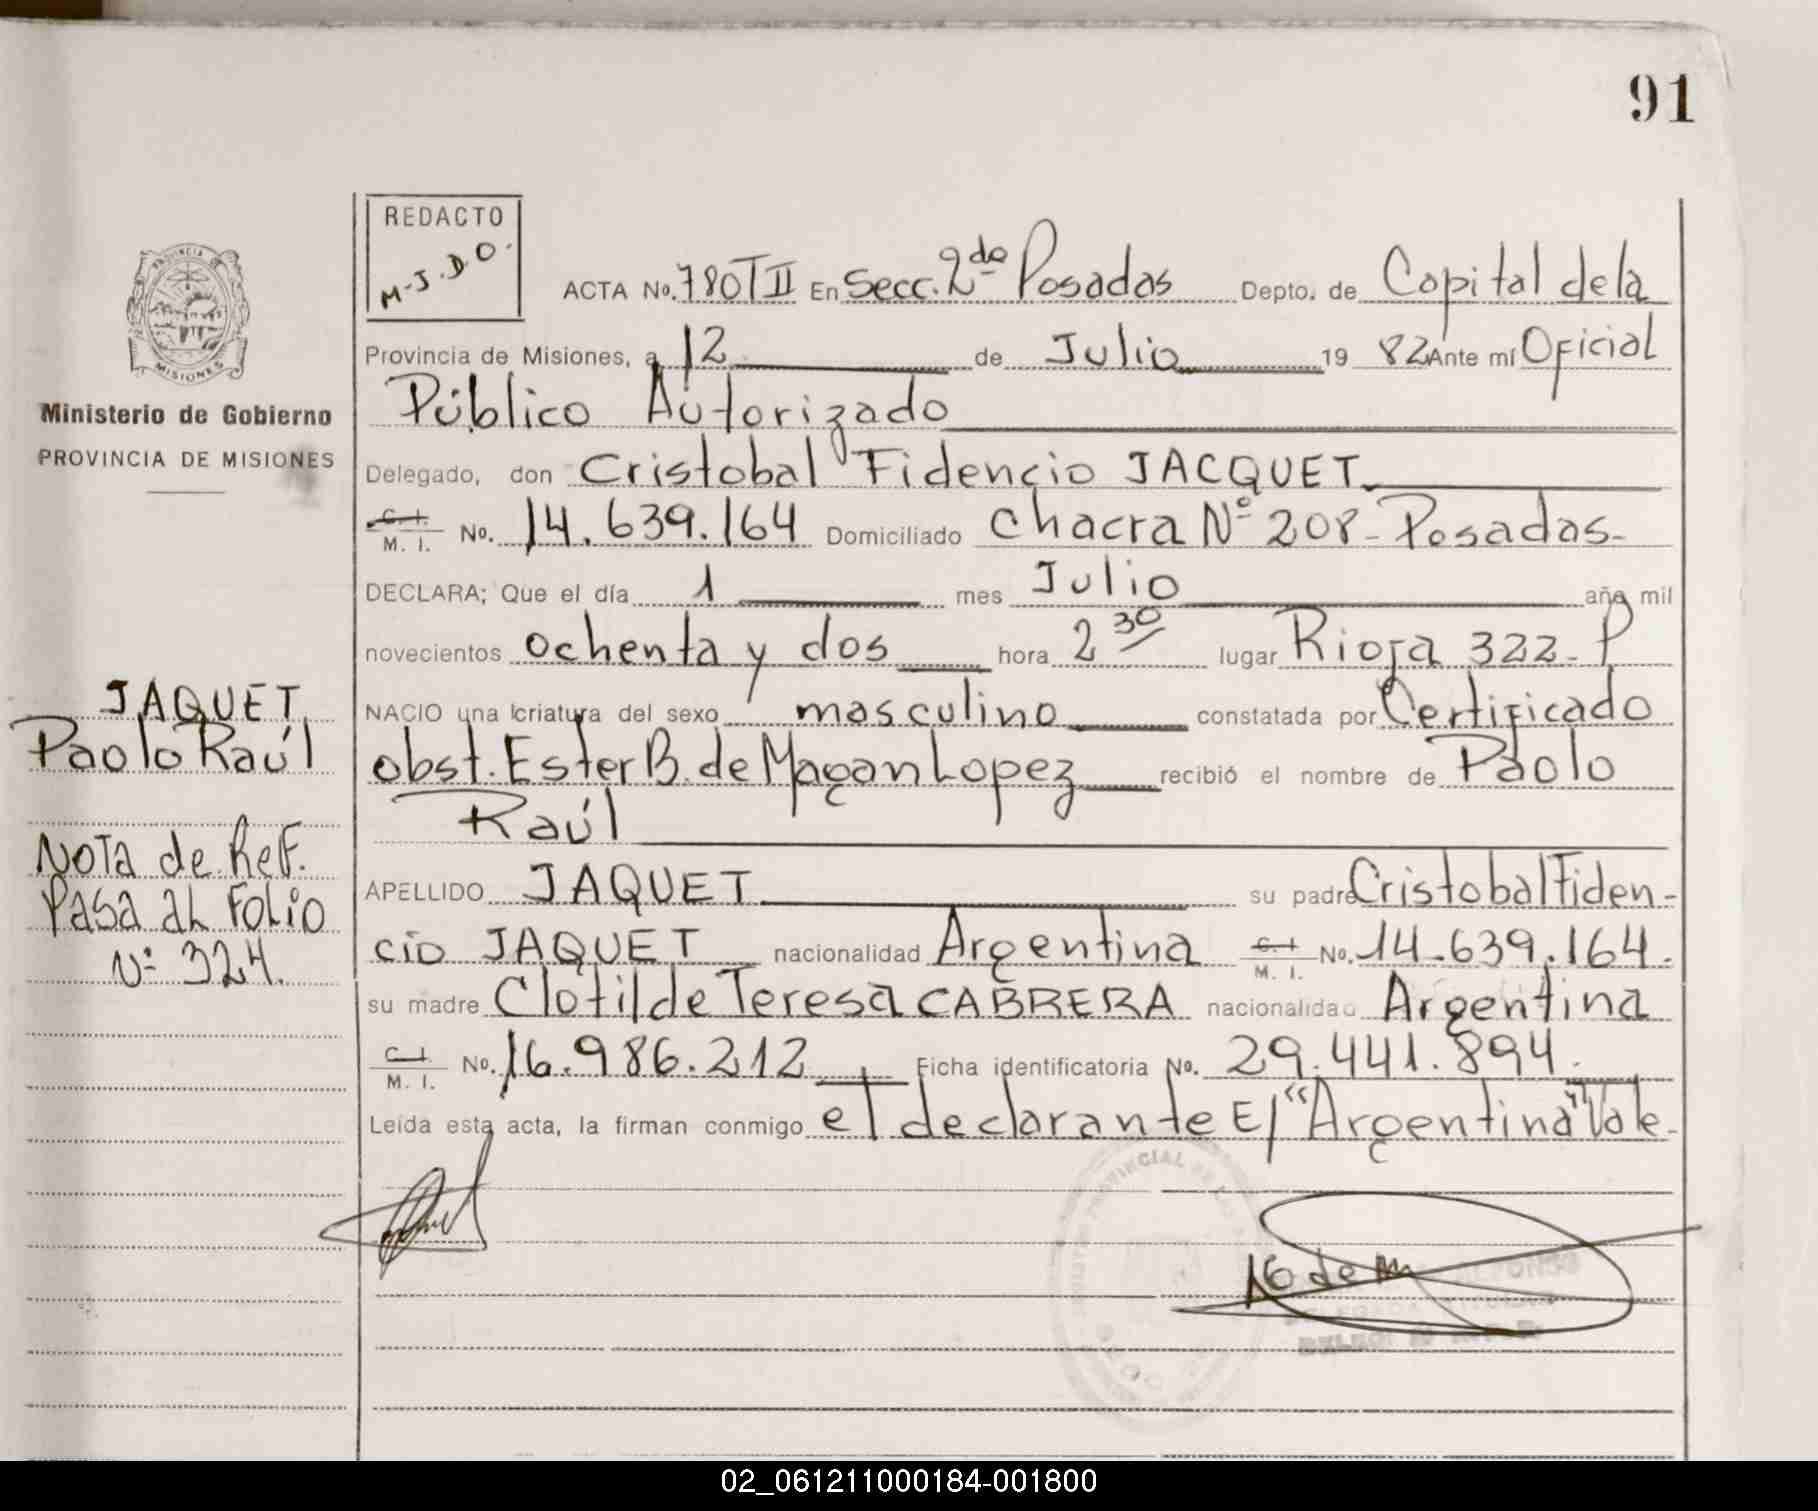 91
REDACTO
M.J.D.O.
PROVINCIA DE
MISIONES
Ministerio de Gobierno
PROVINCIA DE MISIONES
ACTA No. 780 T II En Secc. 2da Posadas Depto. de Capital de la
Provincia de Misiones, a 12 de Julio 19 82 Ante mí Oficial
Público Autorizado
Delegado, don Cristobal Fidencio JACQUET
C. I. M. I. No. 14.639.164 Domiciliado Chacra Nº 208 - Posadas-
DECLARA; Que el día 1 mes Julio año mil
novecientos ochenta y dos hora 2 30 lugar Rioja 322- P
NACIO una criatura del sexo masculino constatada por Certificado
obst. Ester B. de Maçan Lopez recibió el nombre de Paolo
Raúl
APELLIDO JAQUET su padre Cristobal Fiden-
cio JAQUET nacionalidad Argentina C. I. M. I. No. 14.639.164.
su madre Clotilde Teresa CABRERA nacionalidad Argentina
C. I. M. I. No. 16.986.212 Ficha identificatoria No. 29.441.894.
Leída esta acta, la firman conmigo el declarante E/ "Argentina" Vale-
JAQUET
Paolo Raúl
NOTA de REF.
PASA AL FOLIO
Nº 324.
02_061211000184-001800